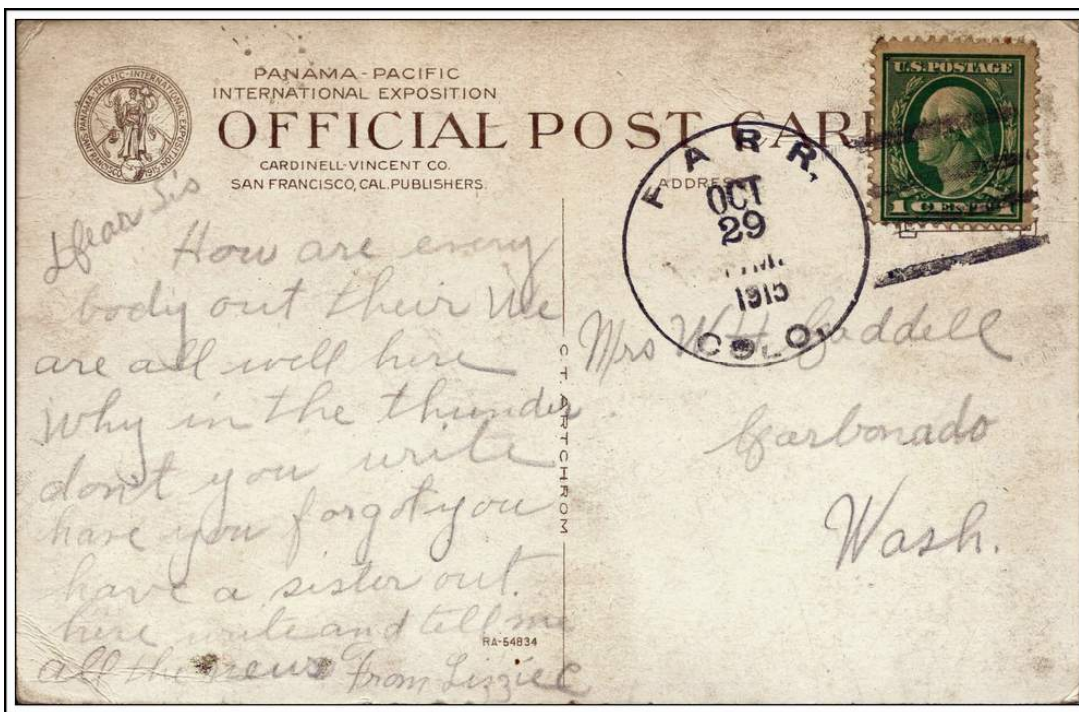 PANAMA-PACIFIC
INTERNATIONAL EXPOSITION
OFFICIAL POST CARD
CARDINELL-VINCENT CO.
SAN FRANCISCO, CAL. PUBLISHERS.
ADDRESS
U.S. POSTAGE
1 CENT 1
FARR,
OCT
29
1915
COLO.
Dear Sis
How are every
body out their We
are all well here
Why in the thunder
don't you write
have you forgot you
have a sister out
here write and tell me
all the news From Lizzie C
C.T. ARTCHROM
RA-54834
Mrs W.H. Caddell
Carbonado
Wash.